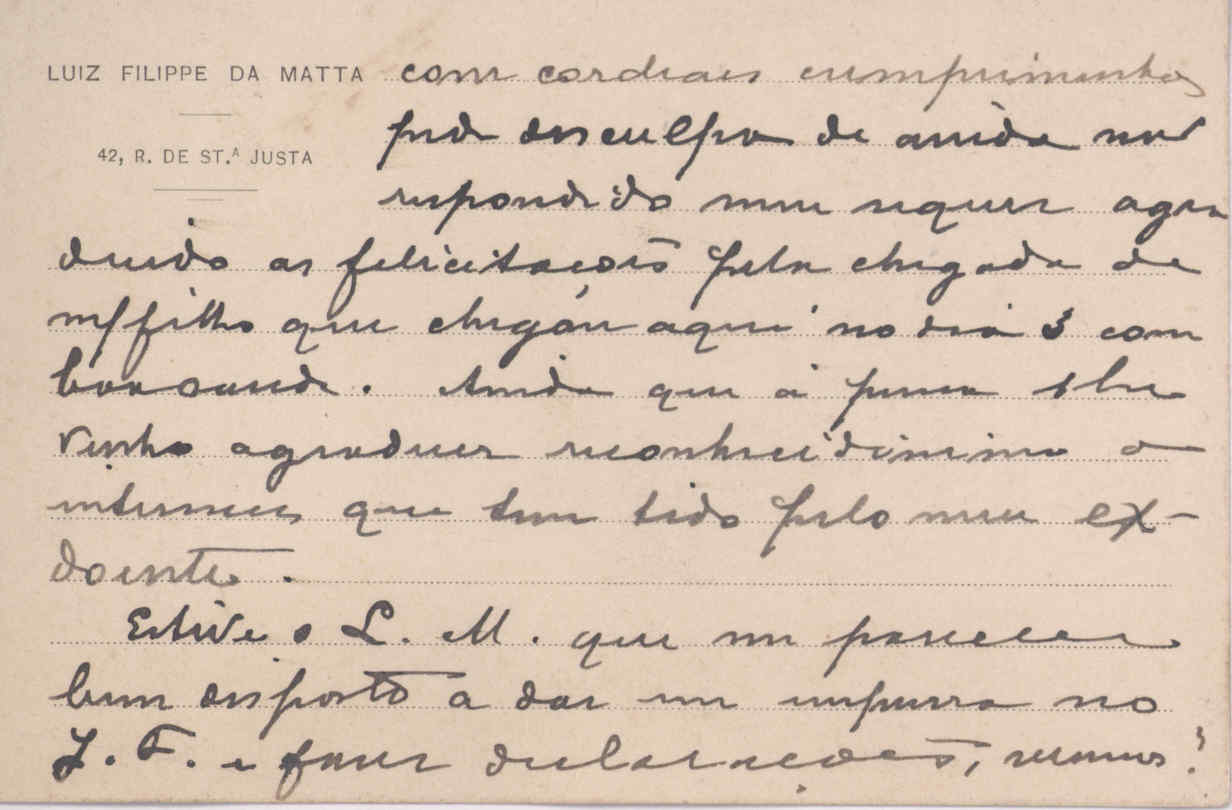 LUIZ FILIPPE DA MATTA com cordiaes cumprimentos
42, R. DE ST.ª JUSTA
pede desculpa de ainda não
respondido nem sequer agra
decido as felicitações pela chegada de
m/filho que chegou aqui no dia 3 com
boa saude. Ainda que à pressa
venho agradecer reconhecidissimo o
interesse que tem tido pelo meu ex-
doente.
Estive o L. M. que me pareceu
bem disposto a dar um empurra no
J. F. e fazer declarações, veremos!